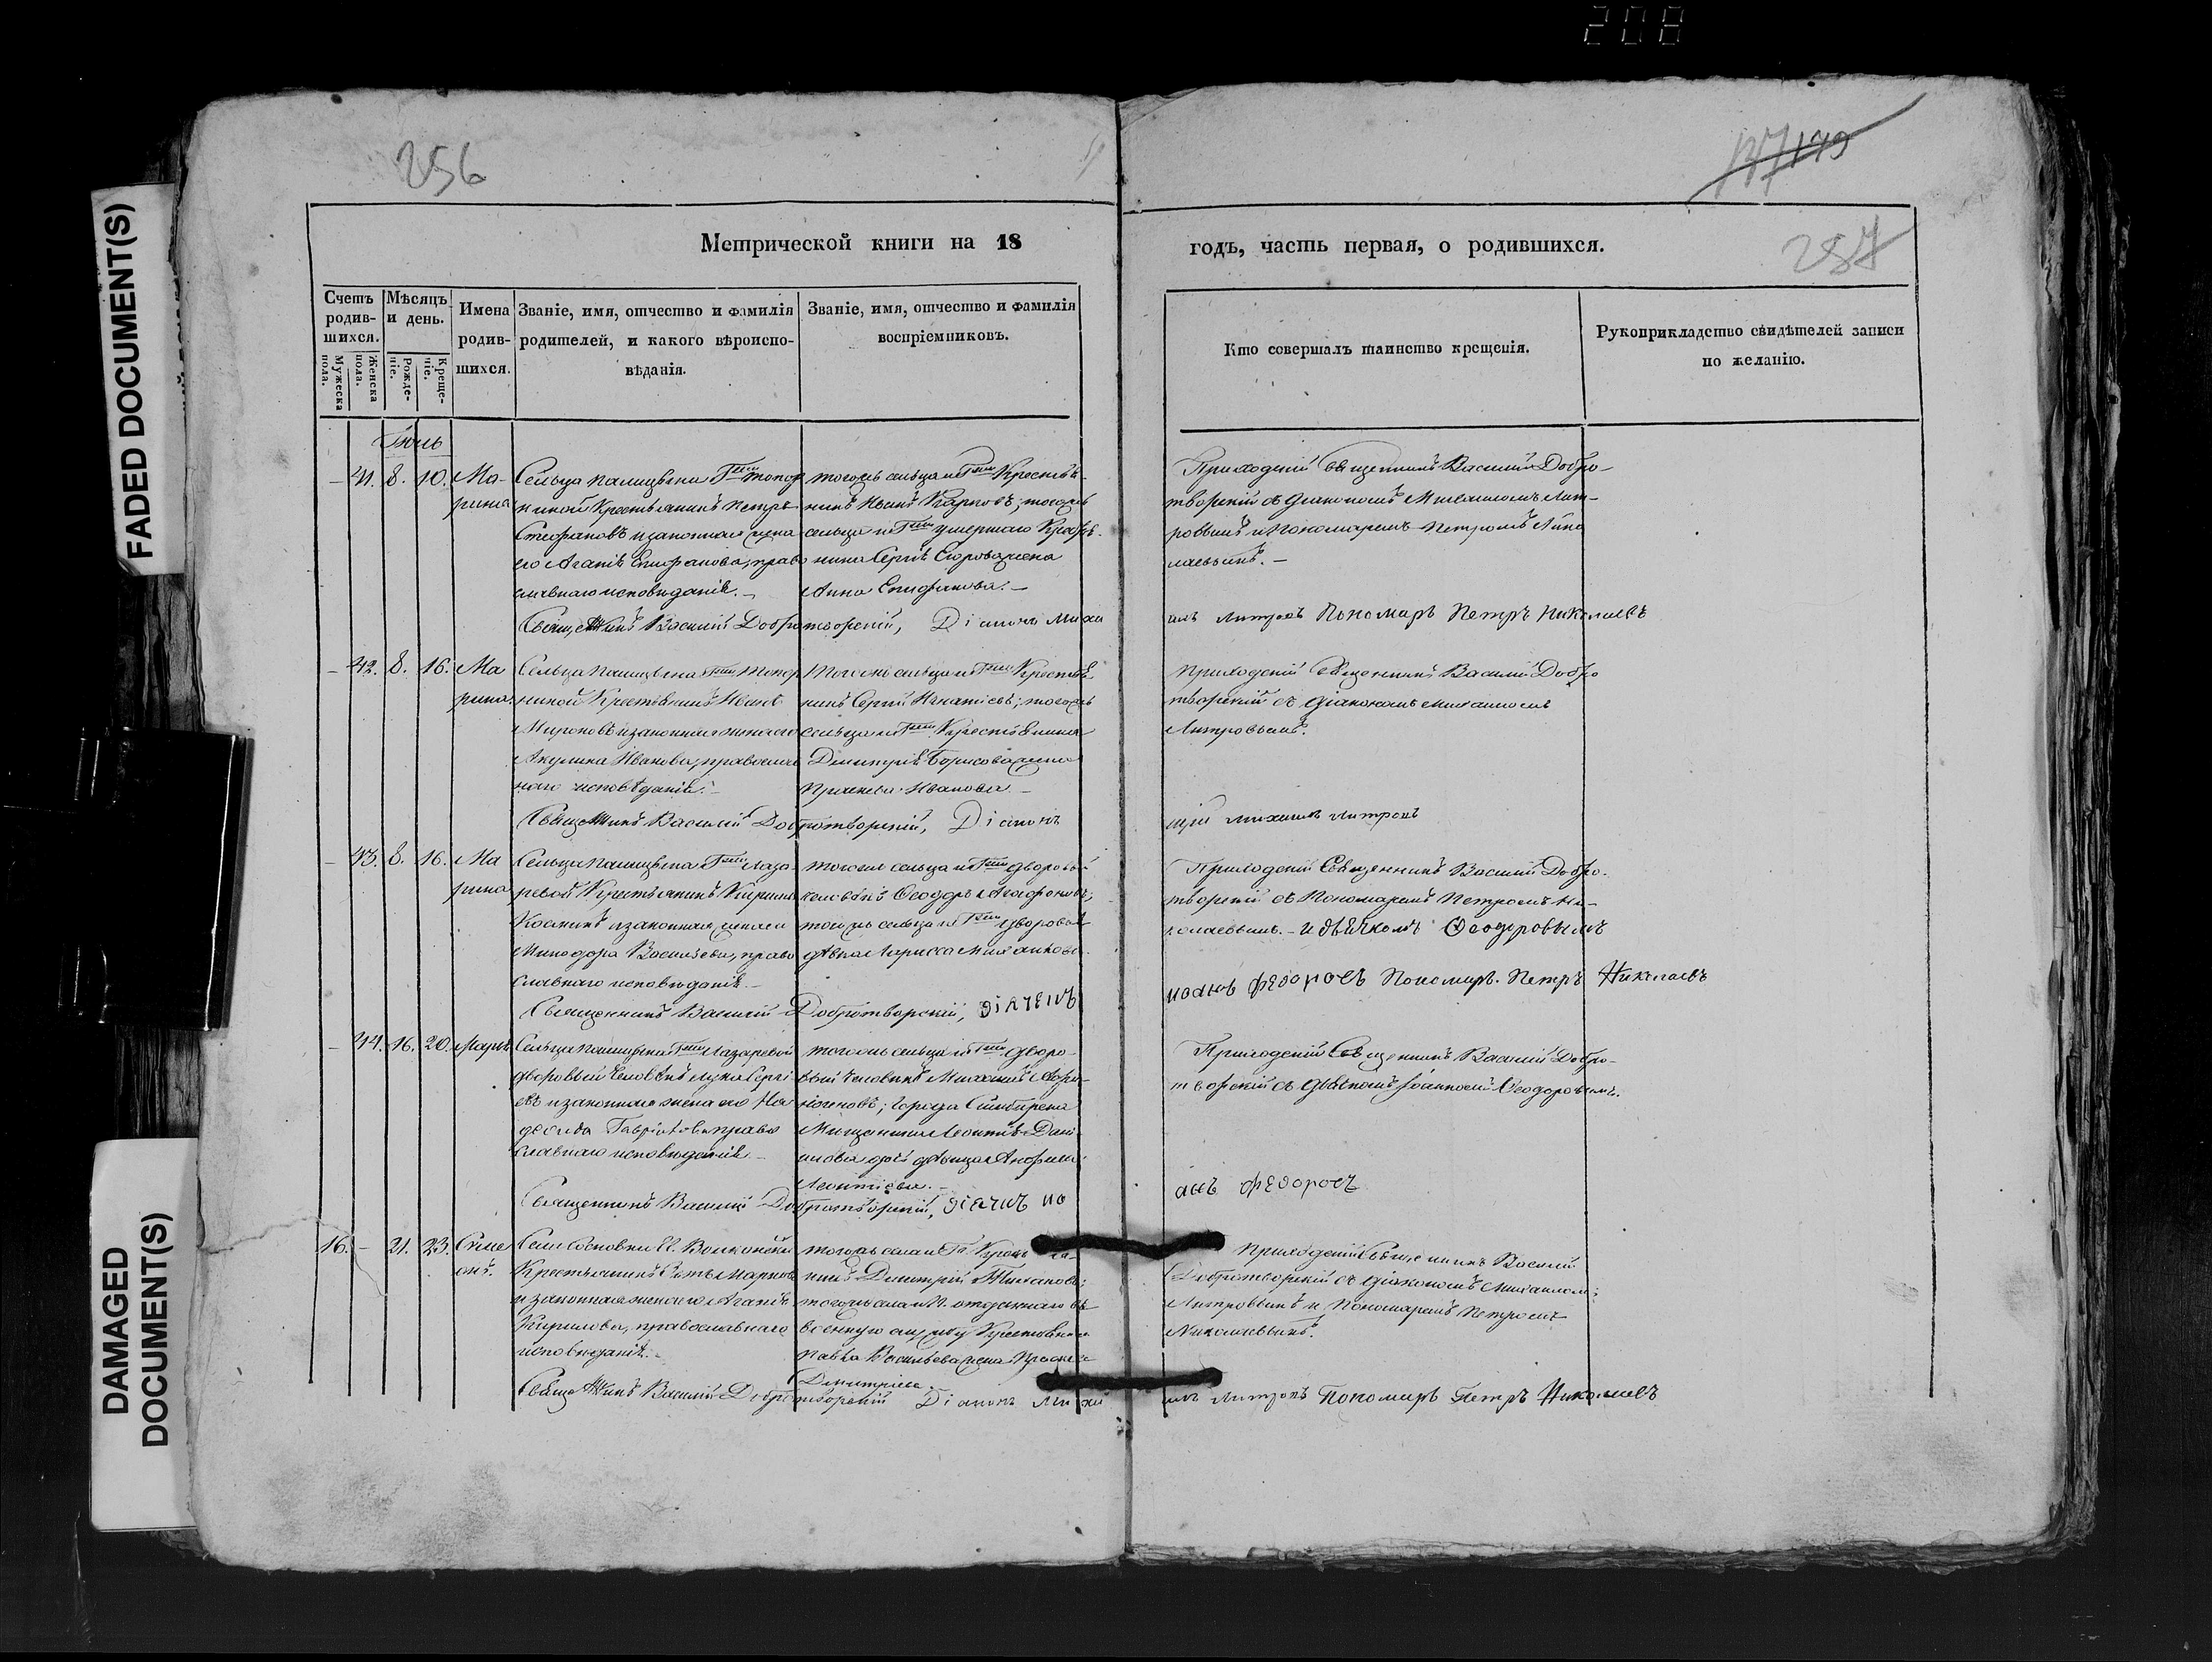 208
FADED DOCUMENT(S)
DAMAGED
DOCUMENT(S)
256
147 179
257
Метрической книги на 18
годъ, часть первая, о родившихся.
Счетъ родив-шихся.
Мужеска пола.
Женска пола.
Мѣсяцъ и день.
Рожде-ніе.
Креще-ніе.
Имена родив-шихся.
Званіе, имя, отчество и фамилія
родителей, и какого вѣроиспо-
вѣданія.
Званіе, имя, отчество и фамилія
воспріемниковъ.
Кто совершалъ таинство крещенія.
Рукоприкладство свидѣтелей записи
по желанію.
Іюль
— 41. 8. 10. Ма-
рина
Сельца Г
Крестьянинъ Петръ
Стефановъ и законная жена
его Агапія Епифанова, право
славнаго исповѣданія. —
тогожъ сельца и Гжи Крестья-
нинъ Иванъ Карповъ; тогожъ
сельца и Гжи умершаго Кресть-
янина Сергія Егорова жена
Анна Епифанова. —
Приходскій Священникъ Василій Добро-
творскій съ Діакономъ Михаиломъ Лит-
ровымъ и Пономаремъ Петромъ Нико
лаевымъ. —
Священникъ Василій Добротворскій, Діаконъ Миха
илъ Пономарь Петръ Николаевъ
— 42. 8. 16. Ма
рина.
Сельца
Крестьянинъ Иванъ
Мироновъ и законная жена его
Акулина Иванова, православ
наго исповѣданія. —
Тогожъ сельца и Гжи Крестья-
нинъ Сергій Игнатіевъ; тогожъ
сельца и Гжи Крестьянина
Димитрія Борисова жена
Прасковья Иванова —
Приходскій Священникъ Василій Добро
творскій съ Діакономъ Михаиломъ
Литровымъ.
Священникъ Василій Добротворскій, Діаконъ
Михаилъ
— 43. 8. 16. Ма
рина
Сельца Гжи Лаза-
ревой Крестьянинъ Кирила
Косминъ и законная жена его
Минодора Васильева, право
славнаго исповѣданія —
тогожъ сельца и Гжи дворовый
человѣкъ Ѳеодоръ Агафоновъ;
тогожъ сельца и Гжи дворовая
дѣвка Лариса
Приходскій Священникъ Василій Добро-
творскій съ Пономаремъ Петромъ Ни-
колаевымъ — и дьячкомъ Ѳеодоровымъ
Священникъ Василій Добротворскій, діячекъ
иоанъ федоровъ Пономарь Петръ Николаевъ
— 44. 16. 20. Марія
Сельца Гжи Лазаревой
дворовый человѣкъ Лука Сергі
евъ и законная жена его На
дежда Гаврилова право
славнаго исповѣданія —
тогожъ сельца и Гжи дворо-
вый человѣкъ Михаилъ
города Симбирска
Мѣщанина Леонтія Дани
лова дочь дѣвица
Леонтіева. —
Приходскій Священникъ Василій Добро-
творскій съ дьячкомъ Іоанномъ Ѳеодоровымъ.
Священникъ Василій Добротворскій, діячекъ ио
анъ федоровъ
16. — 21. 23. Симе
онъ.
Села Сосновки Волконской
Крестьянинъ Марковъ
и законная жена его Агапія
Кирилова, православнаго
исповѣданія. —
тогожъ села и Крестья
нинъ Димитрій
тогожъ села и отданнаго въ
военную службу Крестьянина
Павла Васильева жена
Димитріева
Приходскій Священникъ Василій
Добротворскій съ Діакономъ Михаиломъ
Литровымъ и Пономаремъ Петромъ
Николаевымъ.
Священникъ Василій Добротворскій Діаконъ Миха
илъ Пономарь Петръ Николаевъ